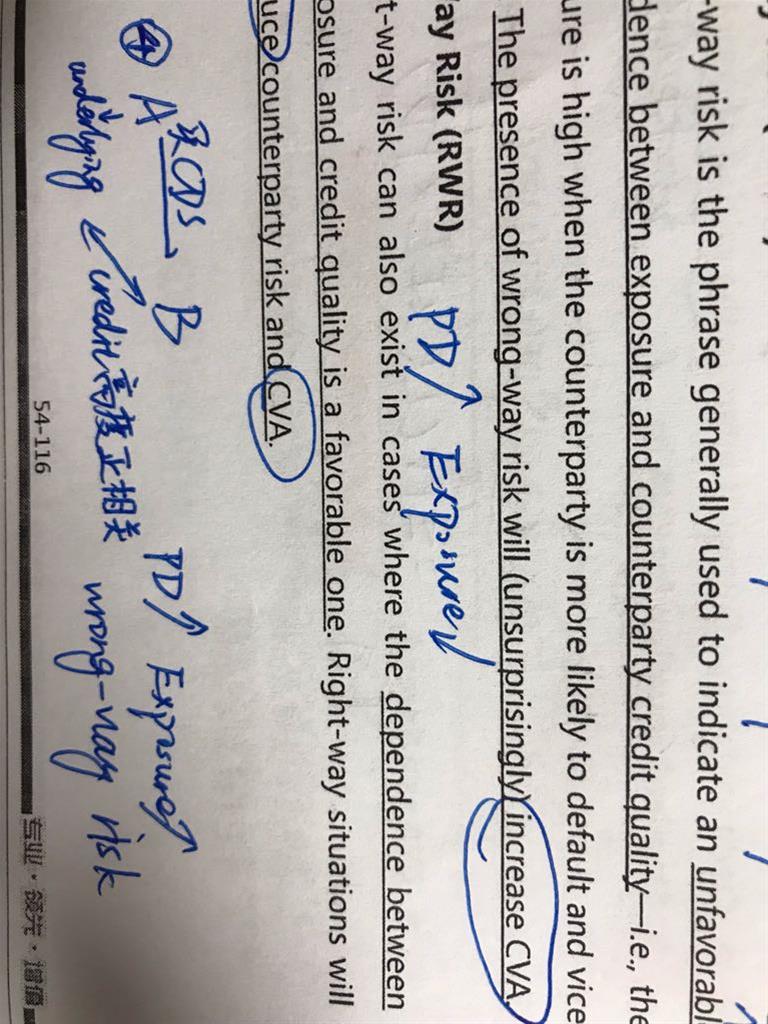 -way risk is the phrase generally used to indicate an unfavorabl
dence between exposure and counterparty credit quality—i.e., the
ure is high when the counterparty is more likely to default and vice
The presence of wrong-way risk will (unsurprisingly) increase CVA.
ay Risk (RWR) PD↑ Exposure↓
t-way risk can also exist in cases where the dependence between
osure and credit quality is a favorable one. Right-way situations will
uce counterparty risk and CVA.
④ A 买CDS B PD↑ Exposure↑
underlying credit高度正相关 wrong-way risk
54-116
专业·领先·增值